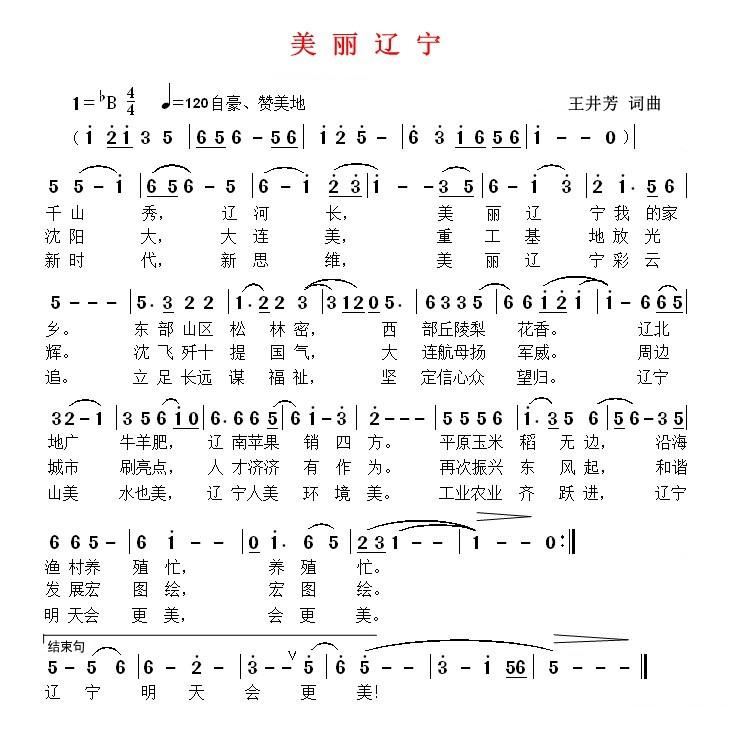 美丽辽宁
1=♭B 4/4 ♩=120 自豪、赞美地 王井芳 词曲
(1 21 3 5 | 656 6 - 56 | 1 2 5 - | 6 3 1656 | 1 - - 0 ) |
5 5 - 1 | 656 - 5 | 6 - 1 23 | 1 - - 35 | 6 - 1 3 | 2 1. 56 |
千山 秀， 辽 河 长， 美 丽 辽 宁我 的家
沈阳 大， 大 连 美， 重 工 基 地放 光
新时 代， 新 思 维， 美 丽 辽 宁彩 云
5 - - - | 5. 3 22 | 1. 22 3 | 3120 5. | 6335 | 66 1 21 | 1 - - 665 |
乡。 东 部 山区 松 林 密， 西 部丘陵梨 花香。 辽北
辉。 沈 飞 歼十 提 国 气， 大 连航母扬 军威。 周边
追。 立 足 长远 谋 福 祉， 坚 定信心众 望归。 辽宁
32 - 1 | 356 10 | 6. 665 | 61 - 3 | 2 - - - | 5556 | 1. 35 6 | 6 - 35 |
地广 牛羊肥， 辽 南苹果 销 四 方。 平原玉米 稻 无 边， 沿海
城市 刷亮点， 人 才济济 有 作 为。 再次振兴 东 风 起， 和谐
山美 水也美， 辽 宁人美 环 境 美。 工业农业 齐 跃 进， 辽宁
6 65 - | 6 1 - - | 0 1. 6 5 | 231 - - | 1 - - 0 :||
渔 村养 殖 忙， 养 殖 忙。
发 展宏 图 绘， 宏 图 绘。
明 天会 更 美， 会 更 美。
结束句
5 - 5 6 | 6 - 2 - | 3 - - ∨ 5 | 5 - 6 5 - - - | 3 - 1 56 | 5 - - - ||
辽 宁 明 天 会 更 美!